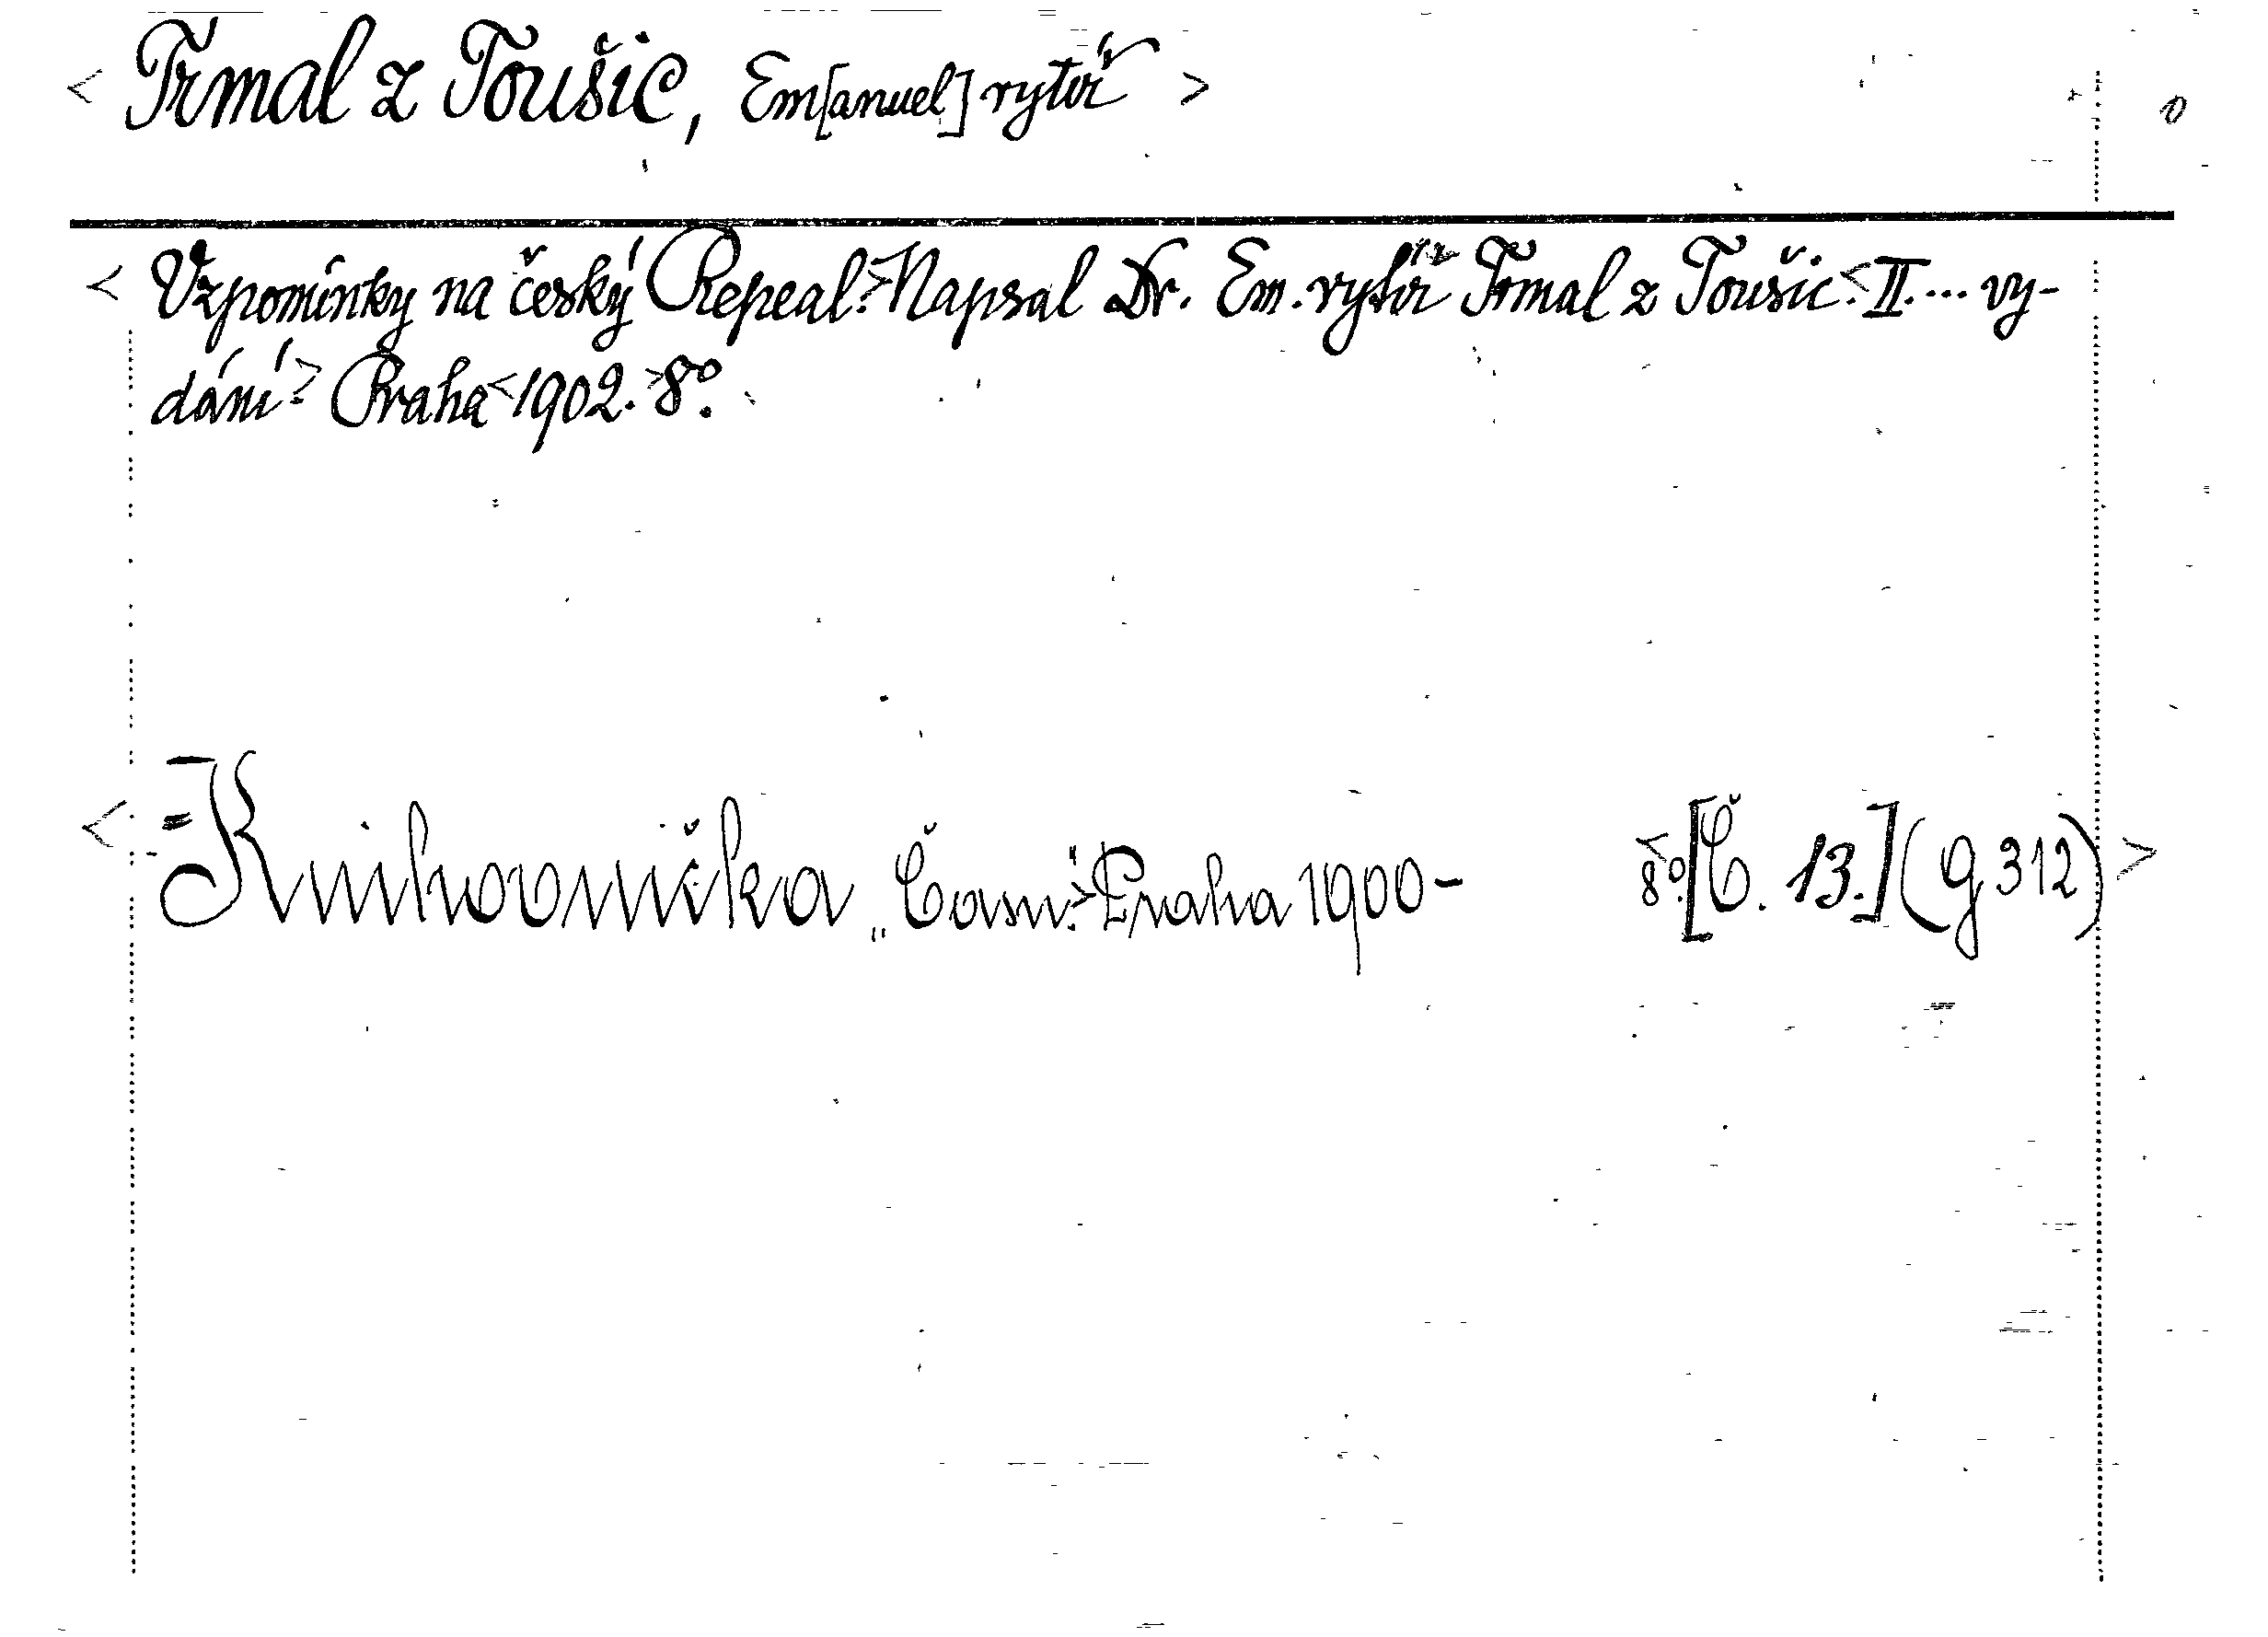 < Trmal z Toušic, Em[anuel] rytíř >
< Vzpomínky na český Repeal.> Napsal Dr. Em. rytíř Trmal z Toušic.< II. ... vy-
dání.> Praha < 1902. > 8°.
< = Knihovnička „Času“.> Praha 1900- < 8°. [Č. 13.] (g 312) >